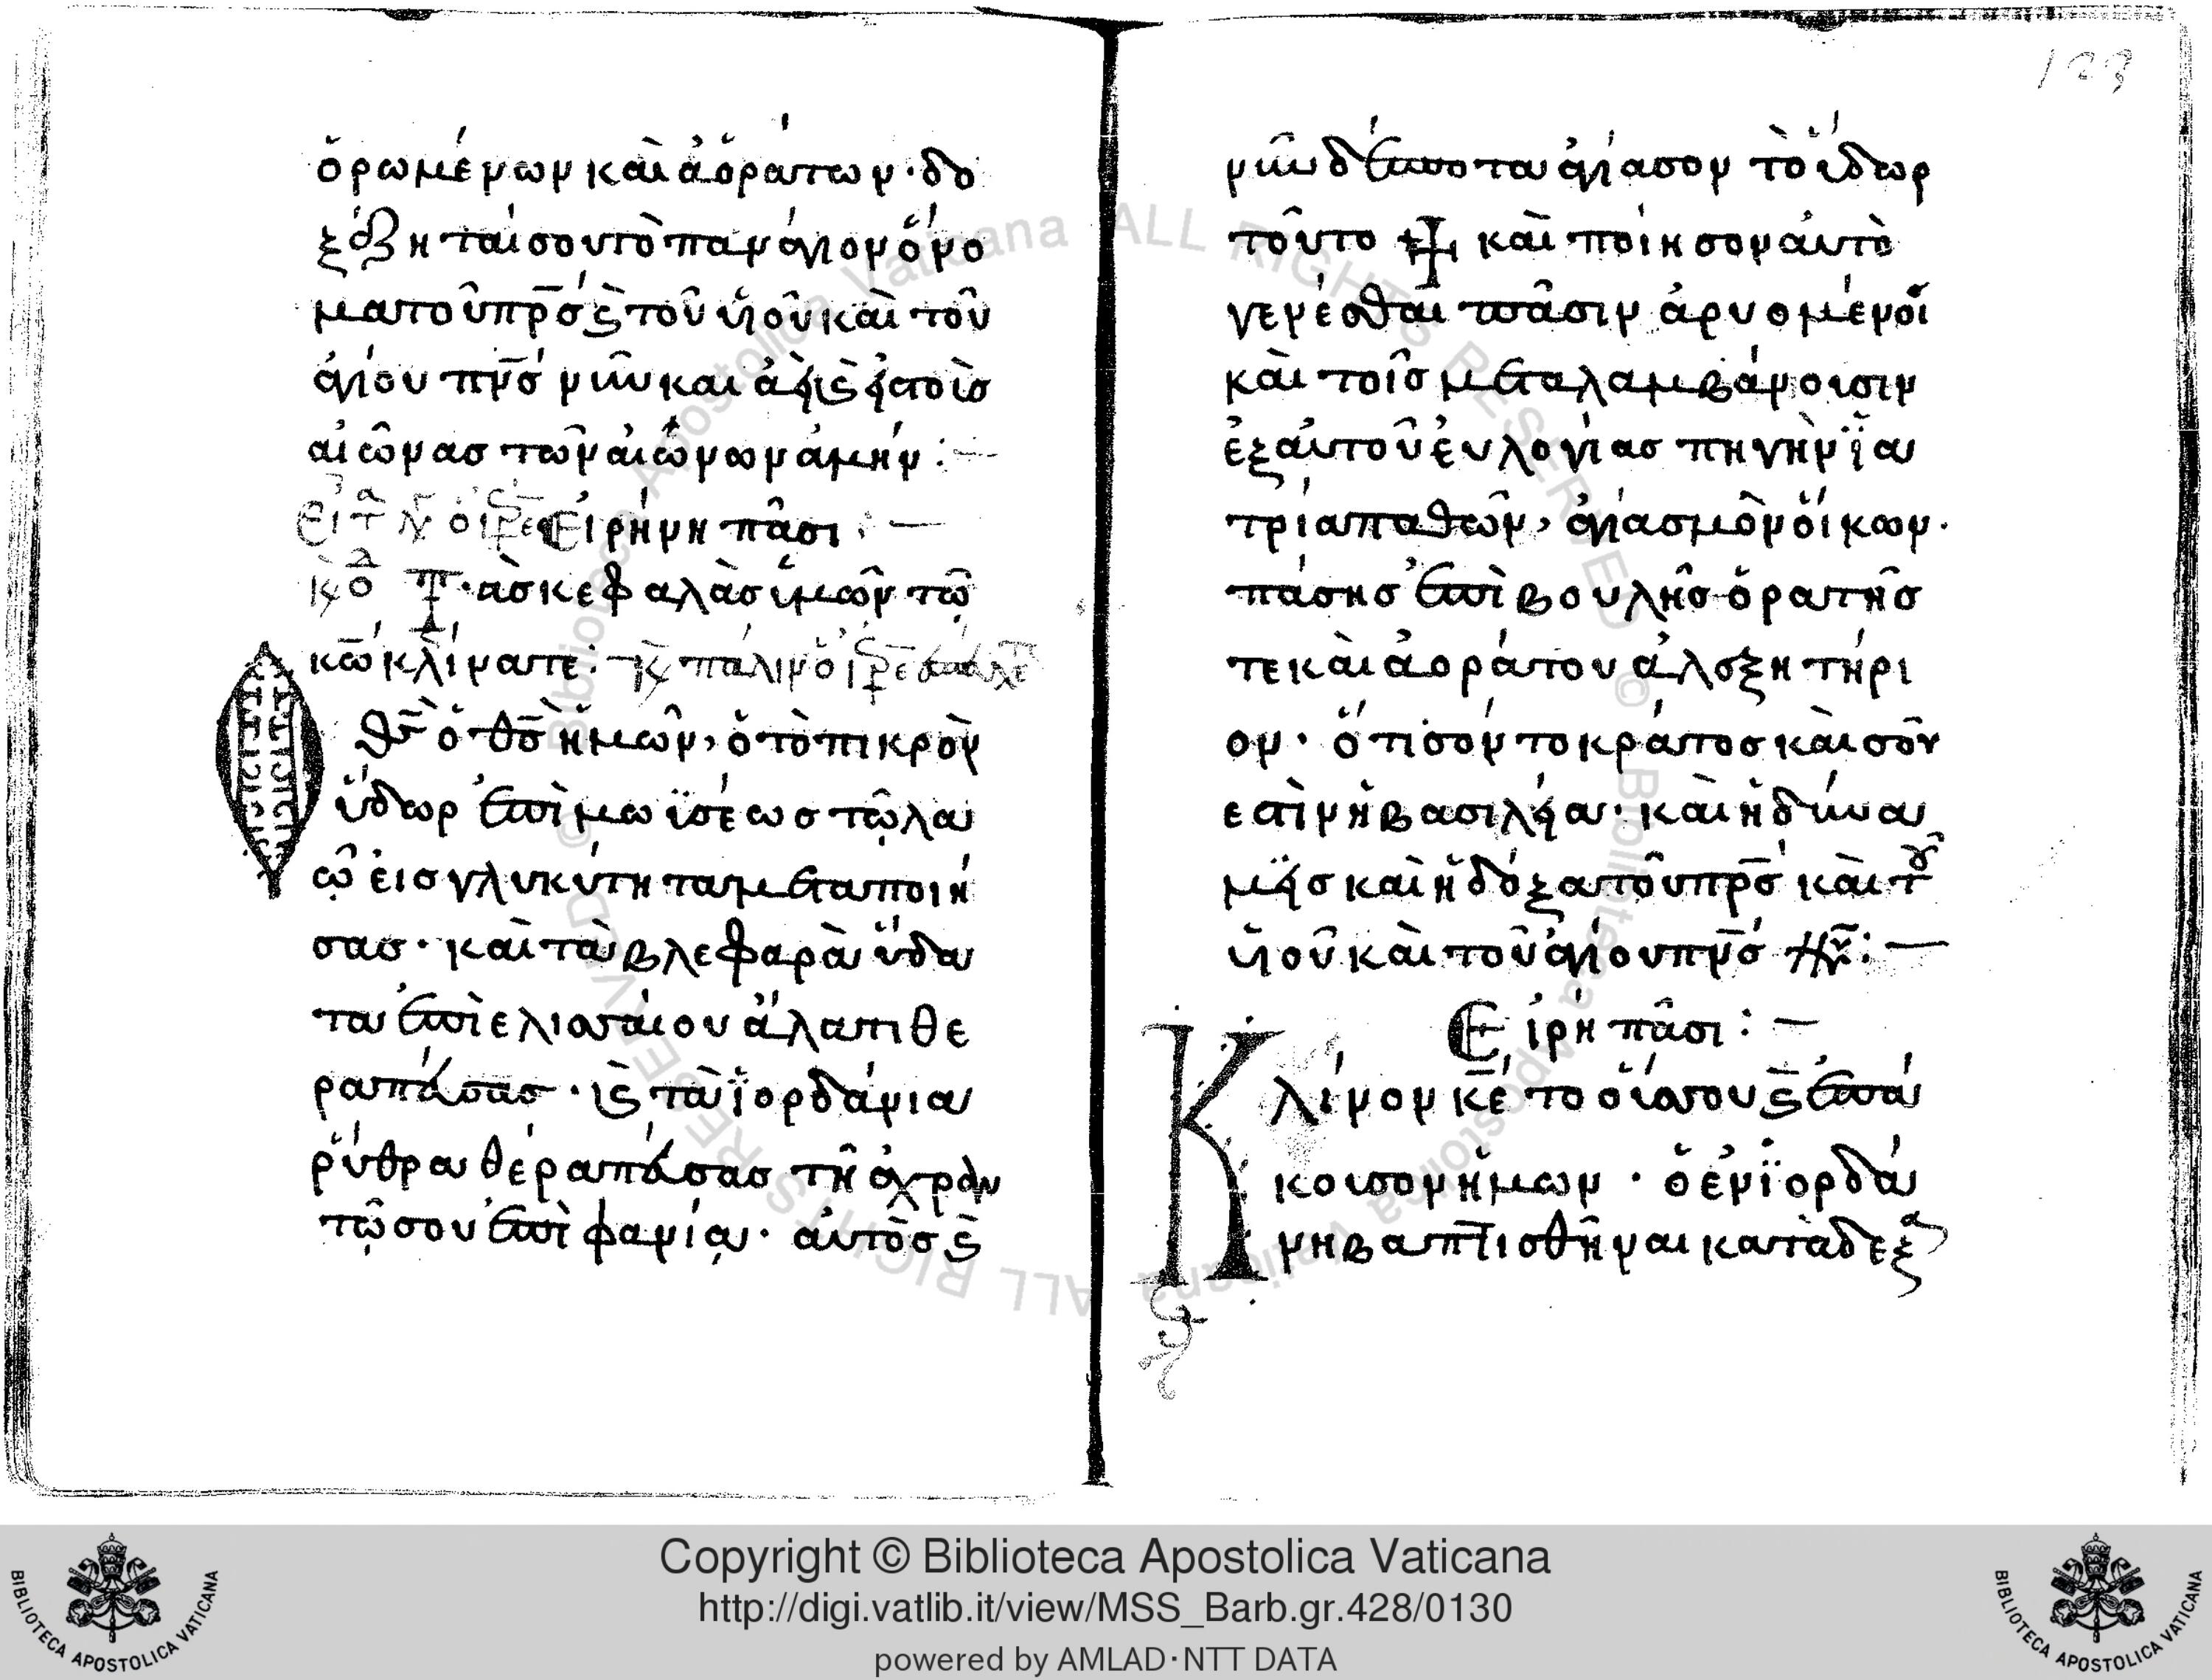 ὁρωμένων καὶ ἀὁράτων · δο
ξάζηται σου τὸ πανάγιον ὄνο
μα τοῦ πρ̅σ ϛ̀ τοῦ υἱοῦ καὶ τοῦ
ἁγίου πν̅σ νῦν και ἀεὶ ϛ̀ εἰσ τοὺσ
αἰῶνασ τῶν αἰώνων ἀμήν : —
Εἰρήνη πᾶσι : —
Τ · ὰσ κεφαλὰσ ὑμῶν τῶ
κ̅ω κλίνατε : — πάλιν ὁ ἱερε
Ο θ̅σ ὁ θ̅σ ἡμῶν, ὁ τὸ πικρὸν
ὕδωρ ἐπὶ μωϊσέωσ τῷ λα
ῷ εἰσ γλυκύτητα μεταποιή
σασ · καὶ τὰ βλεφαρὰ ὕδα
τα ἐπὶ ελισσαίου ἅλατι θε
ραπεύσασ · ϛ̀ τὰ ἰορδάνια
ῥύθρα θεραπεύσασ τῆ ἀχράν
τῷ σου ἐπὶφανίᾳ · ἀυτὸσ ϛ̀
123
νῦν δέσποτα ἁγίασον τὸ ὕδωρ
τοῦτο ☩ καὶ ποίησον ἀυτὸ
γενέσθαι πᾶσιν ἀρυομένοι
καὶ τοῖσ μεταλαμβάνουσιν
ἐξ ἀυτοῦ ἐυλογίασ πηγὴν ἴα
τρία παθῶν, ἁγιασμὸν ὄίκων ·
πάσησ ἐπὶβουλῆσ ὁρατῆσ
τε καὶ ἀοράτου ἀλεξητήρι
ον · ὅτι σόν το κράτοσ καὶ σοῦ
εστὶν ἡ βασιλεία · καὶ ἡ δύνα
μϊσ καὶ ἡ δόξα τοῦ πρ̅σ καὶ τοῦ
υἱοῦ καὶ τοῦ ἁγίου πν̅σ νῦν : —
Εἰρή πᾶσι : —
Κλίνον κ̅ε το οὖσ σου ϛ̀ ἐπά
κουσον ἡμων · ὁ ἐν ϊορδά
νη βαπτισθῆναι καταδεξ
Copyright © Biblioteca Apostolica Vaticana
http://digi.vatlib.it/view/MSS_Barb.gr.428/0130
powered by AMLAD·NTT DATA
BIBLIOTECA APOSTOLICA VATICANA
BIBLIOTECA APOSTOLICA VATICANA